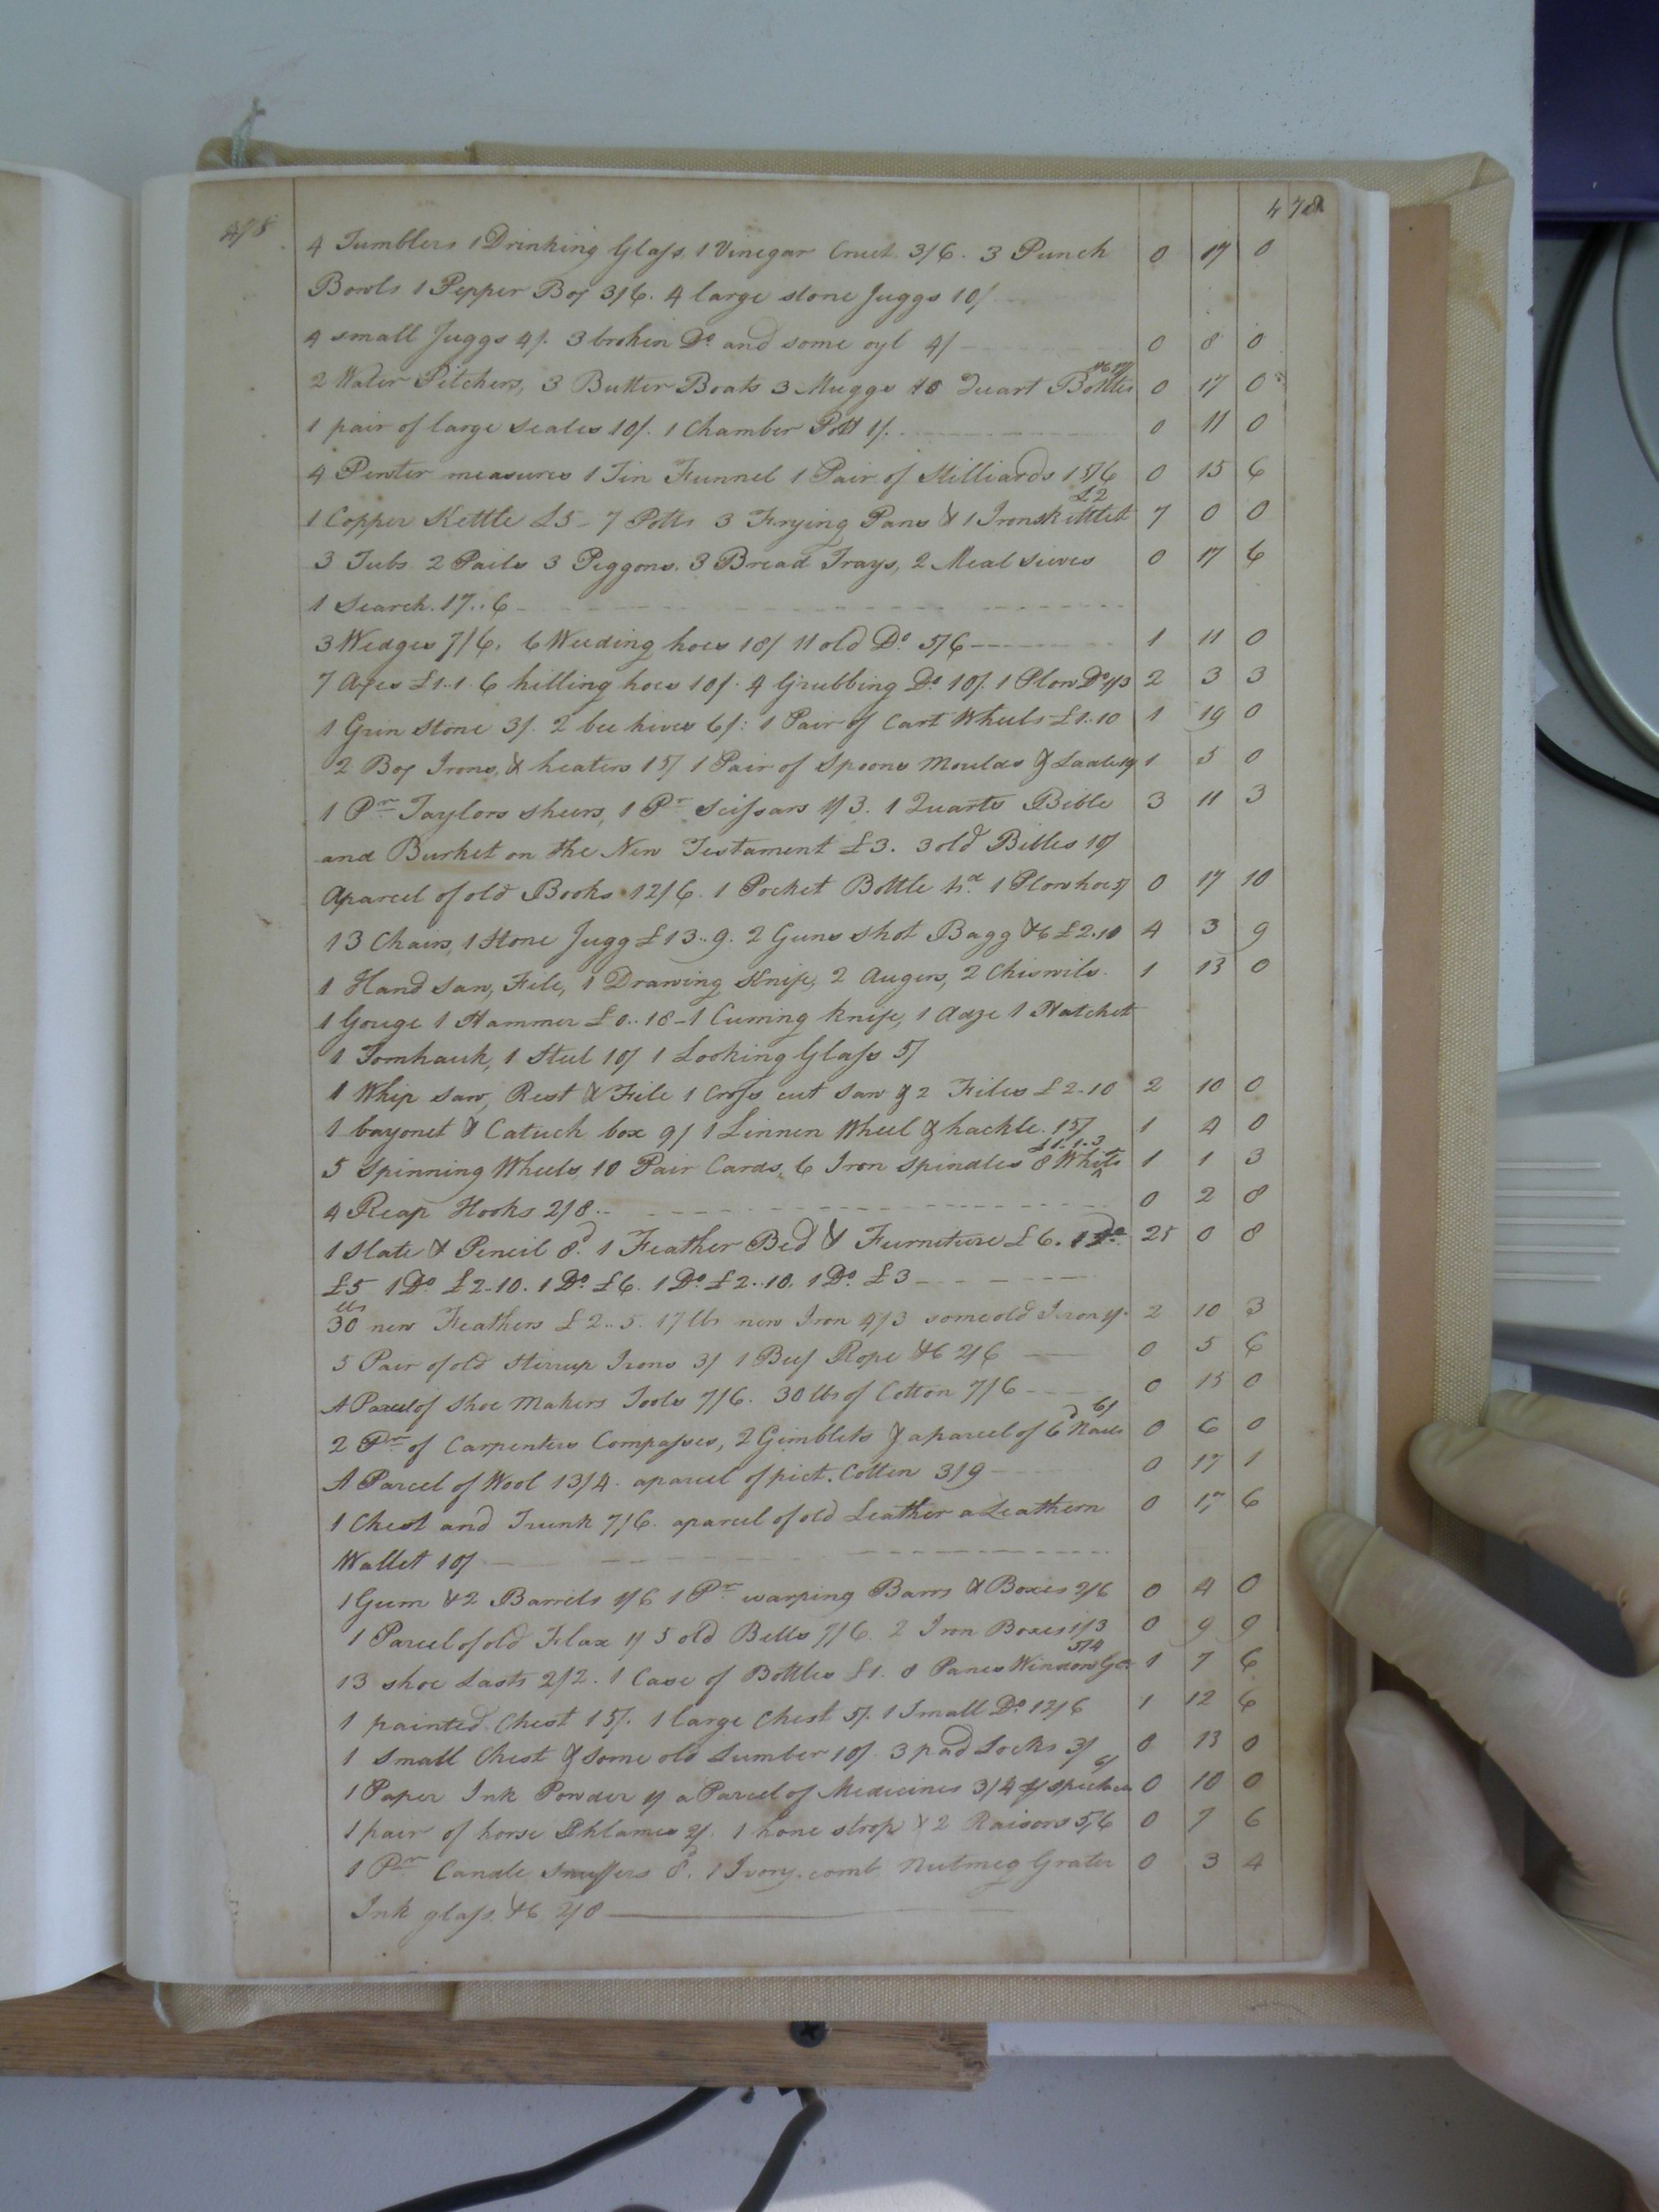 478
478
4 Tumblers 1 Drinking Glass, 1 Vinegar Cruet 3/6. 3 Punch 0 17 0
Bowls 1 Pepper Box 3/6. 4 large stone Juggs 10/
4 small Juggs 4/. 3 broken Do. and some oyl 4/ 0 8 0
2 Water Pitchers, 3 Butter Boats 3 Muggs 10 Quart Bottles 0 17 0
1 pair of large scales 10/. 1 Chamber Pott 1/. 0 11 0
4 Pewter measures 1 Tin Funnel 1 Pair of Stilliards 15/6 0 15 6
1 Copper Kettle £5 - 7 Potts 3 Frying Pans & 1 Iron skittlet £2 7 0 0
3 Tubs 2 Pails 3 Piggons, 3 Bread Trays, 2 Meal sieves 0 17 6
1 Search. 17..6
3 Wedges 7/6. 6 Weeding hoes 18/ 11 old Do. 5/6 1 11 0
7 Axes £1..1. 6 hilling hoes 10/. 4 Grubbing Do. 10/. 1 Plow Do 1/3 2 3 3
1 Grin stone 3/. 2 bee hives 6/: 1 Pair of Cart Wheels £1..10 1 19 0
2 Box Irons, & heaters 15/ 1 Pair of Spoons Moulds & Ladle 1 5 0
1 Pr. Taylors sheers, 1 Pr. Scissars 1/3. 1 Quarto Bible 3 11 3
and Burket on the New Testament £3. 3 old Bibles 10/
Aparcel of old Books 12/6. 1 Pocket Bottle 4d. 1 Plow hoe 5/ 0 17 10
13 Chairs, 1 Stone Jugg £13..9. 2 Guns shot Bagg &c £2.10 4 3 9
1 Hand saw, File, 1 Drawing Knife, 2 Augers, 2 Chiswils. 1 13 0
1 Gouge 1 Hammer £0..18 - 1 Curring knife, 1 Adze 1 Hatchet
1 Tomhauk, 1 Steel 10/ 1 Looking Glass 5/
1 Whip saw, Rest & File 1 Cross cut saw & 2 Files £2-10 2 10 0
1 bayonet & Catuch box 9/ 1 Linnen Wheel & hackle. 15/ 1 4 0
5 Spinning Wheels, 10 Pair Cards, 6 Iron Spindles & £1..1..3 1 1 3
4 Reap Hooks 2/8 0 2 8
1 Slate & Pencil 8d. 1 Feather Bed & Furniture £6. 1 Do. 25 0 8
£5 1 Do. £2-10. 1 Do. £6. 1 Do. £2..10. 1 Do. £3
30 lbs new Feathers £2..5. 17 lbs new Iron 4/3 some old Iron 1/. 2 10 3
5 Pair of old Stirrup Irons 3/ 1 Bed Rope &c 2/6 0 5 6
A Parcel of Shoe Makers Tools 7/6. 30 lbs of Cotton 7/6 0 15 0
2 Pr. of Carpenters Compasses, 2 Gimblets & aparcel of 6d Nails 6/ 0 6 0
A Parcel of Wool 13/4. aparcel of pict. Cotten 3/9 0 17 1
1 Chest and Trunk 7/6. aparcel of old Leather a Leathern 0 17 6
Wallet 10/
1 Gum & 2 Barrels 1/6 1 Pr. warping Barrs & Boxes 2/6 0 4 0
1 Parcel of old Flax 1/ 5 old Bells 7/6. 2 Iron Boxes 1/3 0 9 9
13 shoe Lasts 2/2. 1 Case of Bottles £1. 8 Panes Window 5/4 1 7 6
1 painted Chest 15/. 1 large Chest 5/. 1 Small Do. 12/6 1 12 6
1 small Chest & some old Lumber 10/. 3 pad Locks 3/ 0 13 0
1 Paper Ink Powder 1/ a Parcel of Medicines 3/4 0 10 0
1 pair of horse Phlames 2/. 1 hone strop & 2 Raisors 5/6 0 7 6
1 Pr. Candle snuffers 8d. 1 Ivory comb Nutmeg Grater 0 3 4
Ink glass &c 2/8